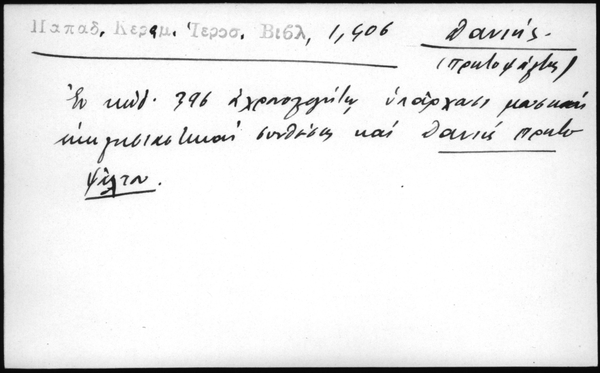 Παπαδ. Κεραμ. Ἱεροσ. Βιβλ, 1,406 Δανιήλ.
(πρωτοψάλτης)
Ἐν κώδ. 396 ἀχρονολογήτῳ ὑπάρχουσι μουσικαὶ
ἐκκλησιαστικαὶ συνθέσεις καὶ Δανιὴλ πρωτο
ψάλτου.